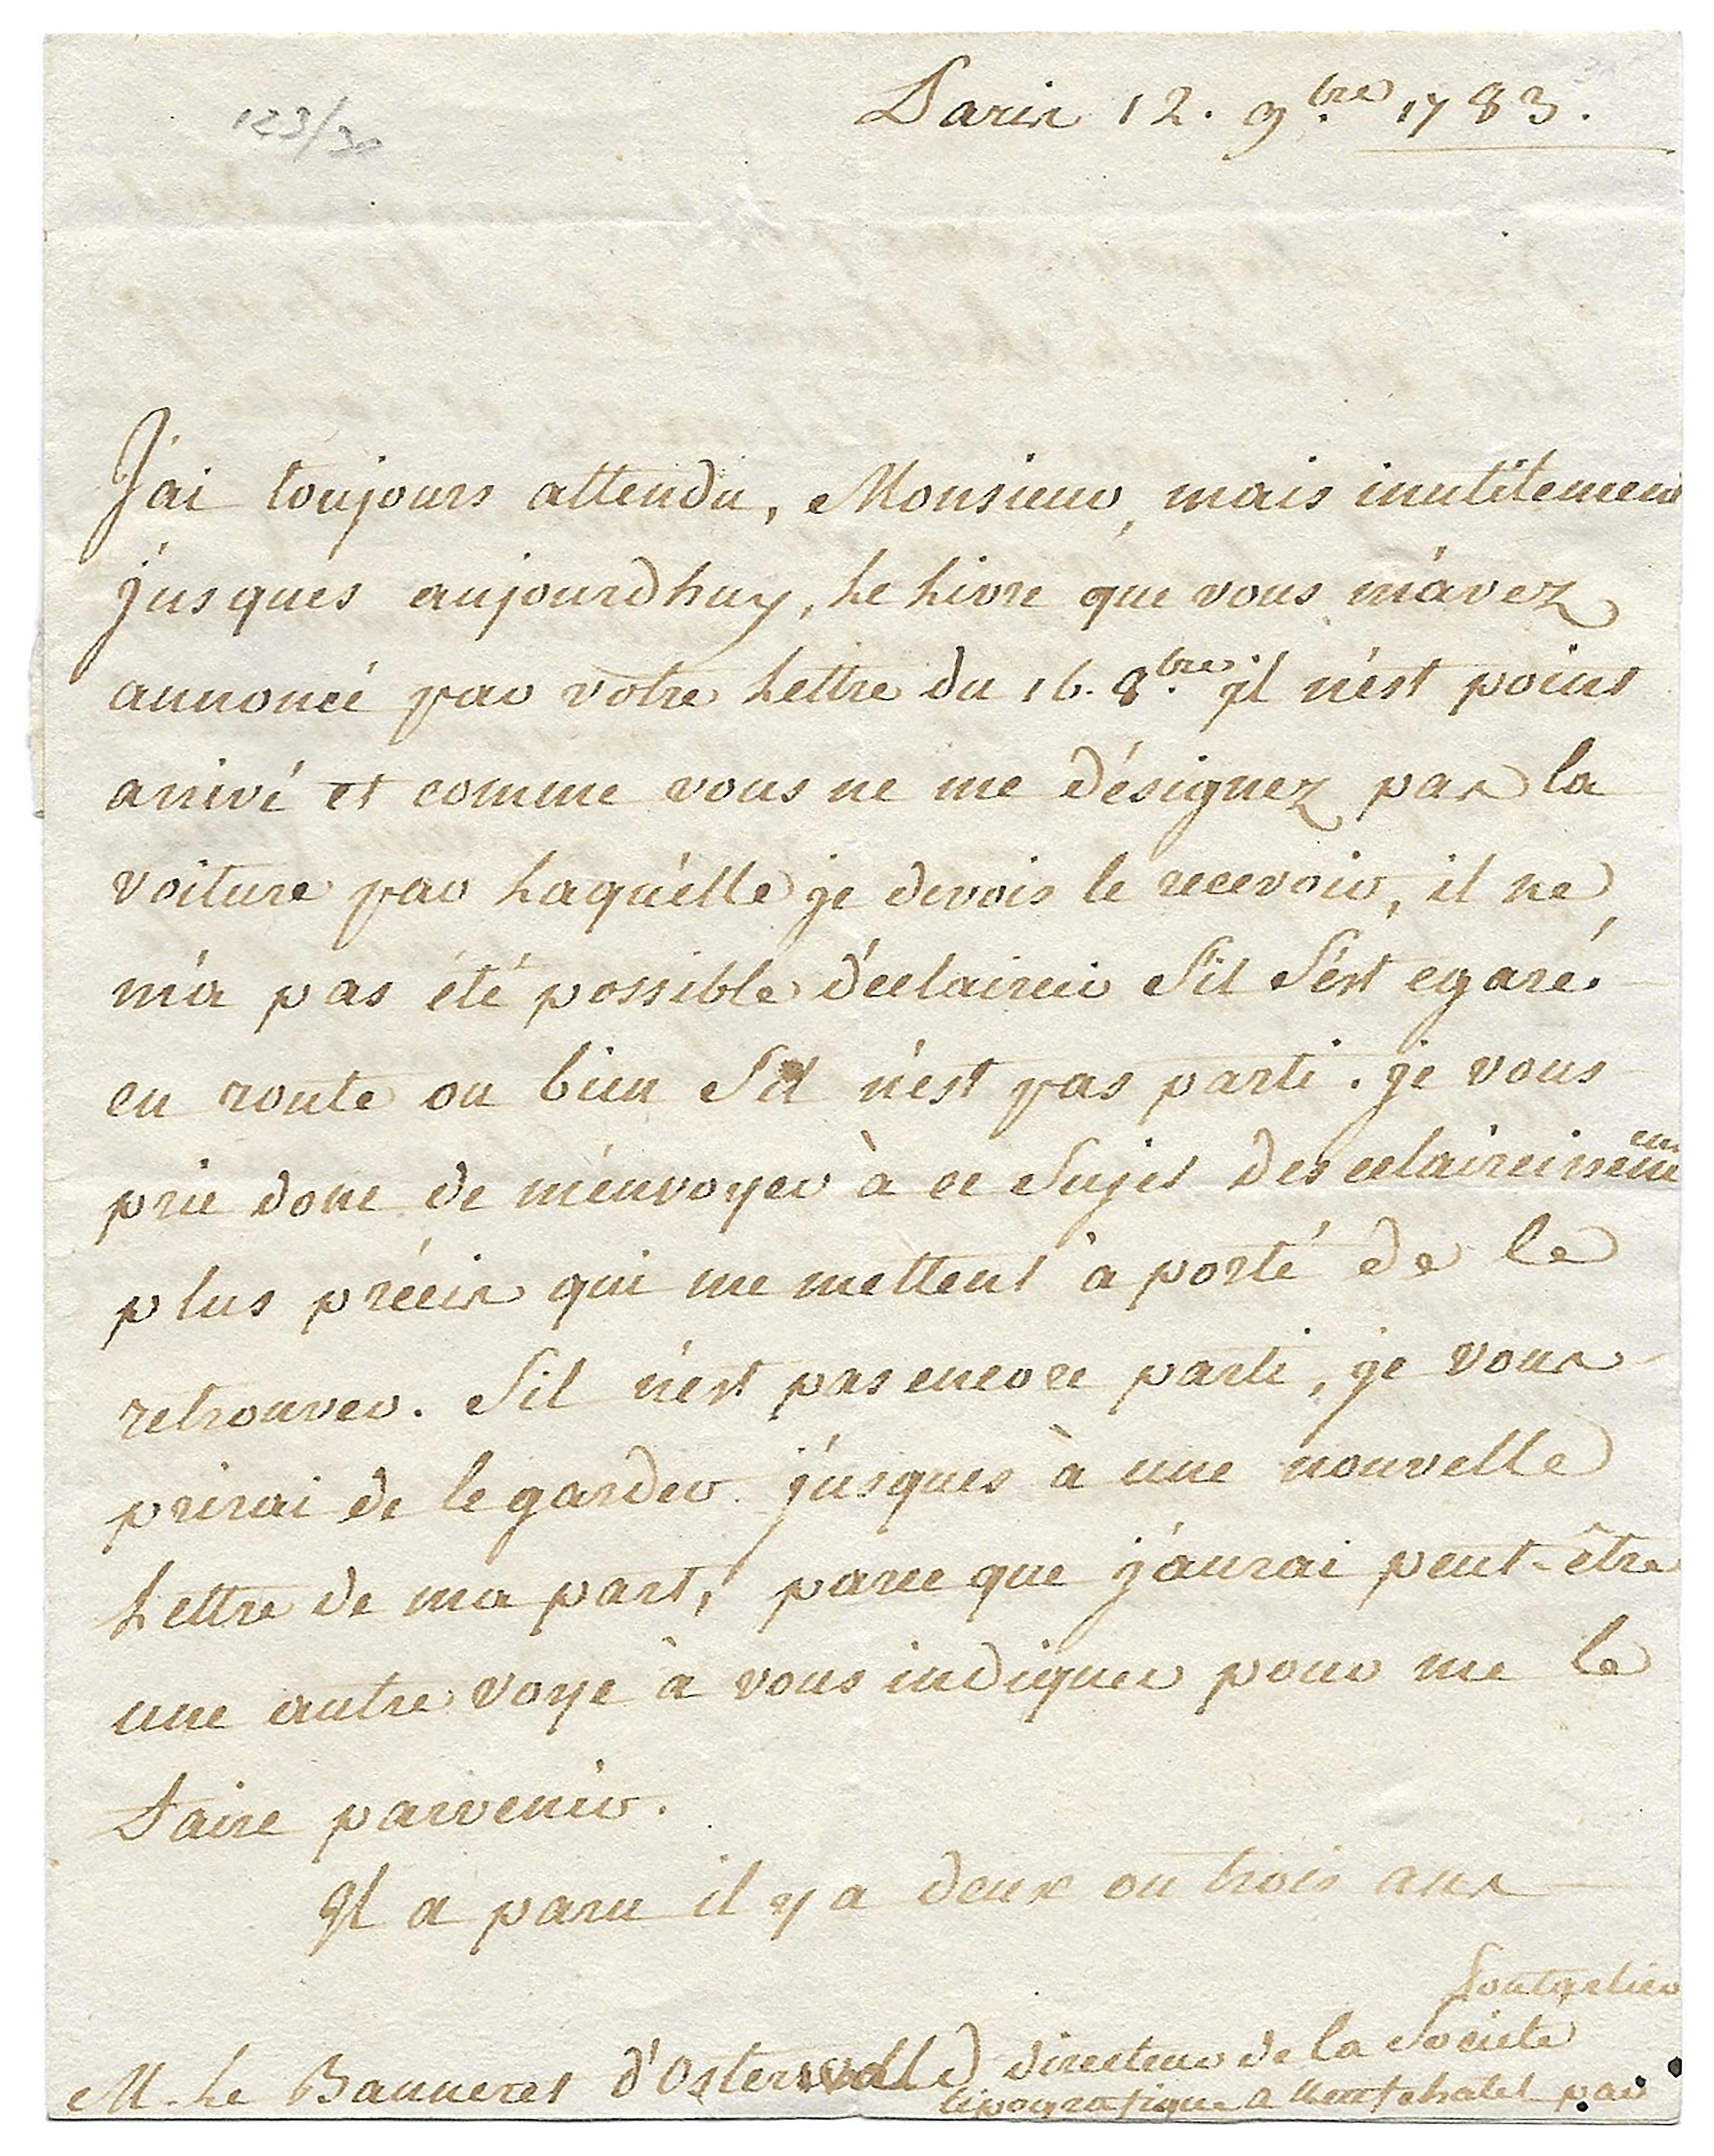 123/30
Paris 12. 9.bre 1783.
J'ai toujours attendu, Monsieur, mais inutilement
jusques aujourdhuy, Le Livre que vous m'avez
annoncé par votre Lettre du 16. 8.bre il n'est point
arrivé et comme vous ne me désignez pas la
voiture par Laquélle je devois le recevoir, il ne
m'a pas été possible d'éclaircir S'il S'est egaré
en route ou bien S'il n'est pas parti. je vous
prie donc de m'envoyer à ce Sujet des eclaircissemens
plus précis qui me mettent à porté de le
retrouver. S'il n'est pas encore parti, je vous
prirai de le garder jusques à une nouvelle
Lettre de ma part, parce que j'aurai peut-être
une autre voye à vous indiquer pour me le
faire parvenir.
Il a paru il y a deux ou trois ans
Pontarlier
M. Le Banneret d'Osterwald directeur de la Societe
tipografique a Neufchatel par